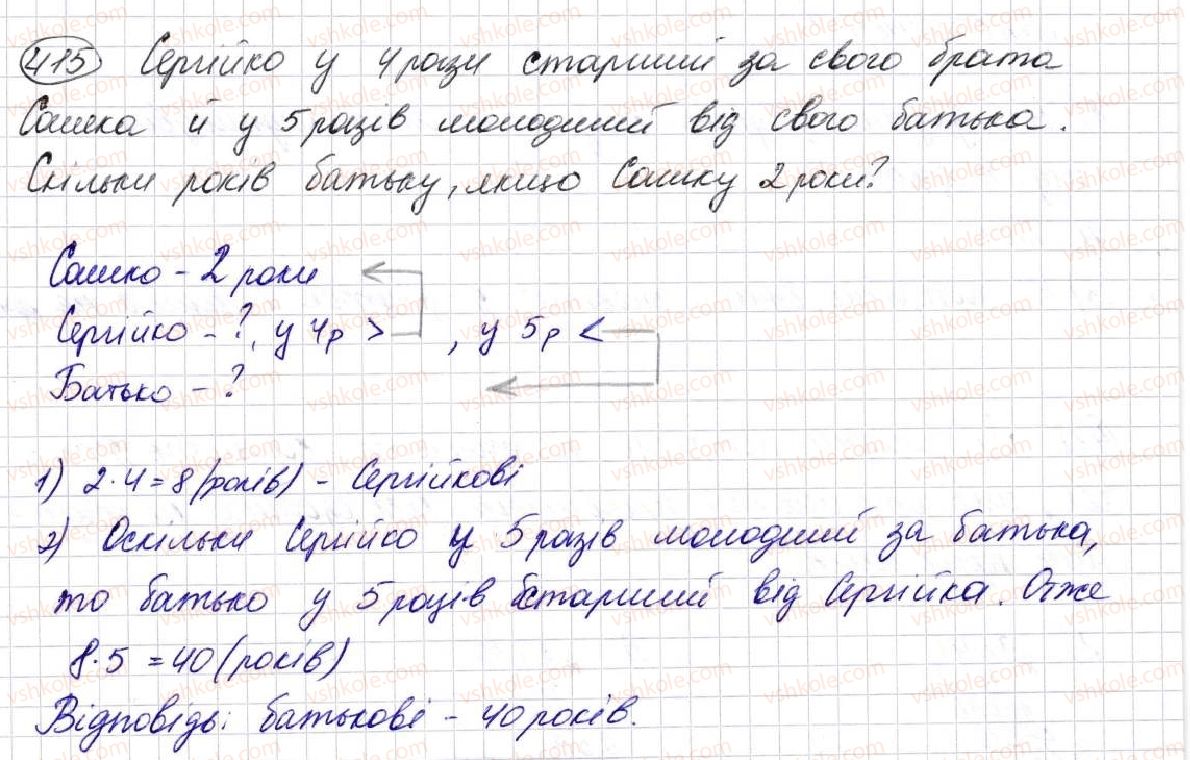 415 Сергійко у 4 рази старший за свого брата
Сашка й у 5 разів молодший від свого батька.
Скільки років батьку, якщо Сашку 2 роки?
Сашко - 2 роки
Сергійко - ?, у 4 р > , у 5 р <
Батько - ?
1) 2·4=8 (років) - Сергійкові
2) Оскільки Сергійко у 5 разів молодший за батька,
то батько у 5 разів старший від Сергійка. Отже
8·5=40 (років)
Відповідь: батькові - 40 років.
vshkole.com